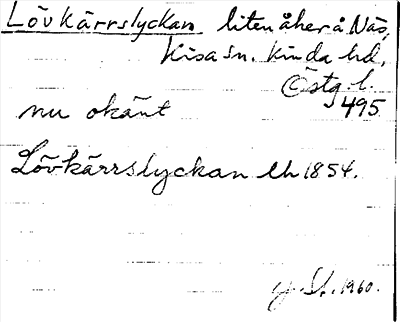 Lövkärrslyckan liten åker å Näs,
Kisa sn. Kinda hd,
Östg. l.
nu okänt 495
Lövkärrslyckan lh 1854.
1960.